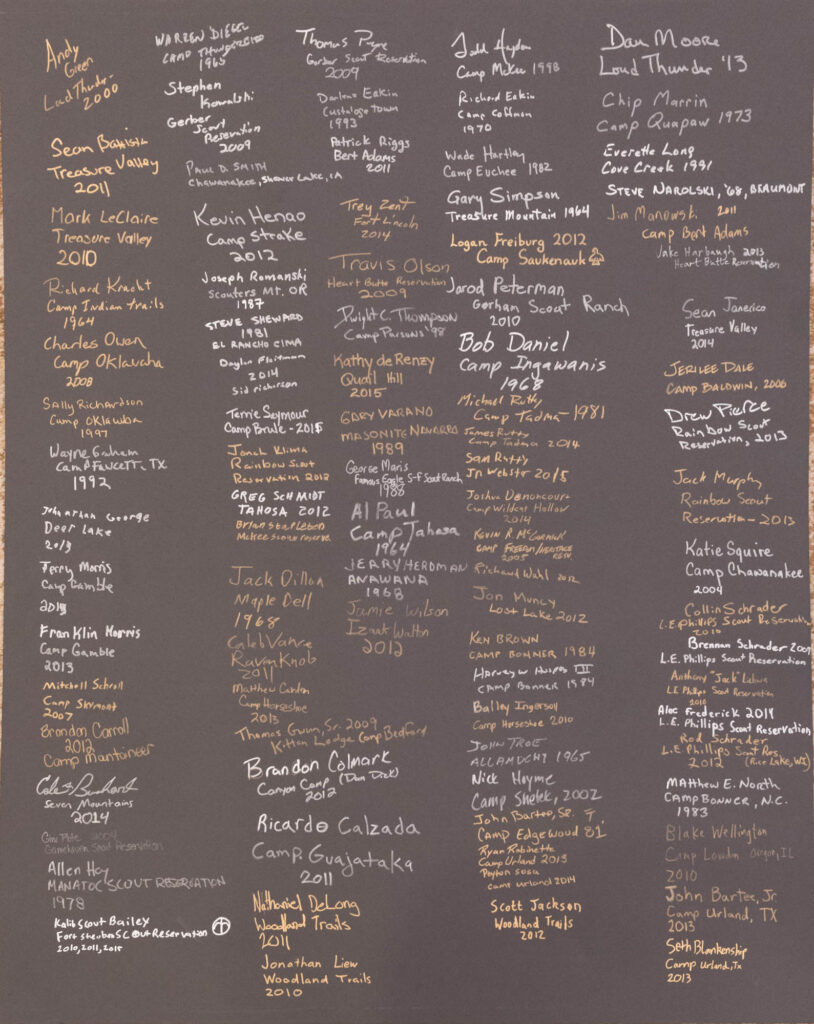 Andy
Green
Loud Thunder
2000
Sean Battista
Treasure Valley
2011
Mark LeClaire
Treasure Valley
2010
Richard Kracht
Camp Indian trails
1964
Charles Owen
Camp Oklawaha
2008
Sally Richardson
Camp Oklawba
1997
Wayne Graham
Camp Fawcett, TX
1992
Johnathan George
Deer Lake
2013
Terry Morris
Camp Gamble
Franklin Morris
Camp Gamble
2013
Mitchell Schroll
Camp Skymont
2007
Brandon Carroll
2012
Camp Mantaineer
Seven Mountains
2014
2004
Gamehaven Scout Reservation
Allen Hoy
MANATOC SCOUT RESERVATION
1978
Kalib Scout Bailey
Fort Steuben SC Out Reservation
2010, 2011, 2015
WARREN DIEGEL
CAMP THUNDERBIRD
1965
Stephen
Kowalski
Gerber
Scout
Reservation
2009
PAUL D. SMITH
Chawanakee, Shaver Lake, CA
Kevin Henao
Camp Strake
2012
Joseph Romanski
Scouters Mt. OR
1987
STEVE SHEWARD
1981
EL RANCHO CIMA
Daylin
2014
Sid richirson
Terrie Seymour
Camp Brule - 2015
Jonah Klima
Rainbow Scout
Reservation 2012
GREG SCHMIDT
TAHOSA 2012
Brian Stapleton
McKee Scout reserve
Jack Dillon
Maple Dell
1968
Caleb Vance
Raven Knob
2011
Matthew Carden
Camp Horseshoe
2013
Thomas Gwin, Sr. 2009
Kitton Lodge Camp Bedford
Brandon Colmark
Canyon Camp (Dan Dick)
2012
Ricardo Calzada
Camp Guajataka
2011
Nathaniel DeLong
Woodland Trails
2011
Jonathan Liew
Woodland Trails
2010
Thomas Pryce
Gerber Scout Reservation
2009
Darlene Eakin
Custaloga Town
1993
Patrick Riggs
Bert Adams
2011
Trey Zent
Fort Lincoln
2014
Travis Olson
Heart Butte Reservation
2009
Dwight C. Thompson
Camp Parsons '98
Kathy de Renzy
Quail Hill
2015
GARY VARANO
MASONITE NAVARRO
1989
George Maris
Famous Eagle S-F Scout Ranch
1988
Al Paul
Camp Tahosa
1964
JERRY HERDMAN
ANAWANA
1968
Jamie Wilson
Izaak Walton
2012
Todd Haydon
Camp McKee 1998
Richard Eakin
Camp Coffman
1970
Wade Hartley
Camp Euchee 1982
Gary Simpson
Treasure Mountain 1964
Logan Freiburg 2012
Camp Saukenauk
Jarod Peterman
Gorham Scout Ranch
2010
Bob Daniel
Camp Ingawanis
1968
Michael Rutty
Camp Tadma - 1981
James Rutty
Camp Tadma 2014
Sam Rutty
Jn Webster 2015
Joshua Denoncourt
Camp Wildcat Hollow
2014
Kevin R. McCormick
CAMP FREEDOM/HERITAGE
2005 RESV.
Richard Wahl 2012
Jon Muncy
Lost Lake 2012
KEN BROWN
CAMP BONNER 1984
CAMP BONNER 1984
Bailey Ingerson
Camp Horseshoe 2010
JOHN TROE
ALLAMUCHY 1965
Nick Hayme
Camp Shetek, 2002
John Bartee, Sr.
Camp Edgewood 81
Ryan Robinette
Camp Urland 2013
Peyton Sosa
Camp Urland 2014
Scott Jackson
Woodland Trails
2012
Dan Moore
Loud Thunder '13
Chip Marrin
Camp Quapaw 1973
Everette Long
Cove Creek 1991
STEVE NAROLSKI, '68, BEAUMONT
Jim Manowski 2011
Camp Bert Adams
Jake Harbaugh 2013
Heart Butte Reservation
Sean Janerico
Treasure Valley
2014
JERILEE DALE
CAMP BALDWIN, 2006
Drew Pierce
Rainbow Scout
Reservation, 2013
Jack Murphy
Rainbow Scout
Reservation - 2013
Katie Squire
Camp Chawanakee
2004
Collin Schrader
L.E. Phillips Scout Reservation
2010
Brennan Schrader 2009
L.E. Phillips Scout Reservation
Anthony "Jack"
LE Phillips Scout Reservation
2010
Alec Frederick 2014
L.E. Phillips Scout Reservation
Rod Schrader
L.E. Phillips Scout Res.
2012 (Rice Lake, WI)
MATTHEW E. NORTH
CAMP BONNER, N.C.
1983
Blake Wellington
Camp Lowden Oregon, IL
2010
John Bartee, Jr
Camp Urland, TX
2013
Seth Blankenship
Camp Urland, Tx
2013